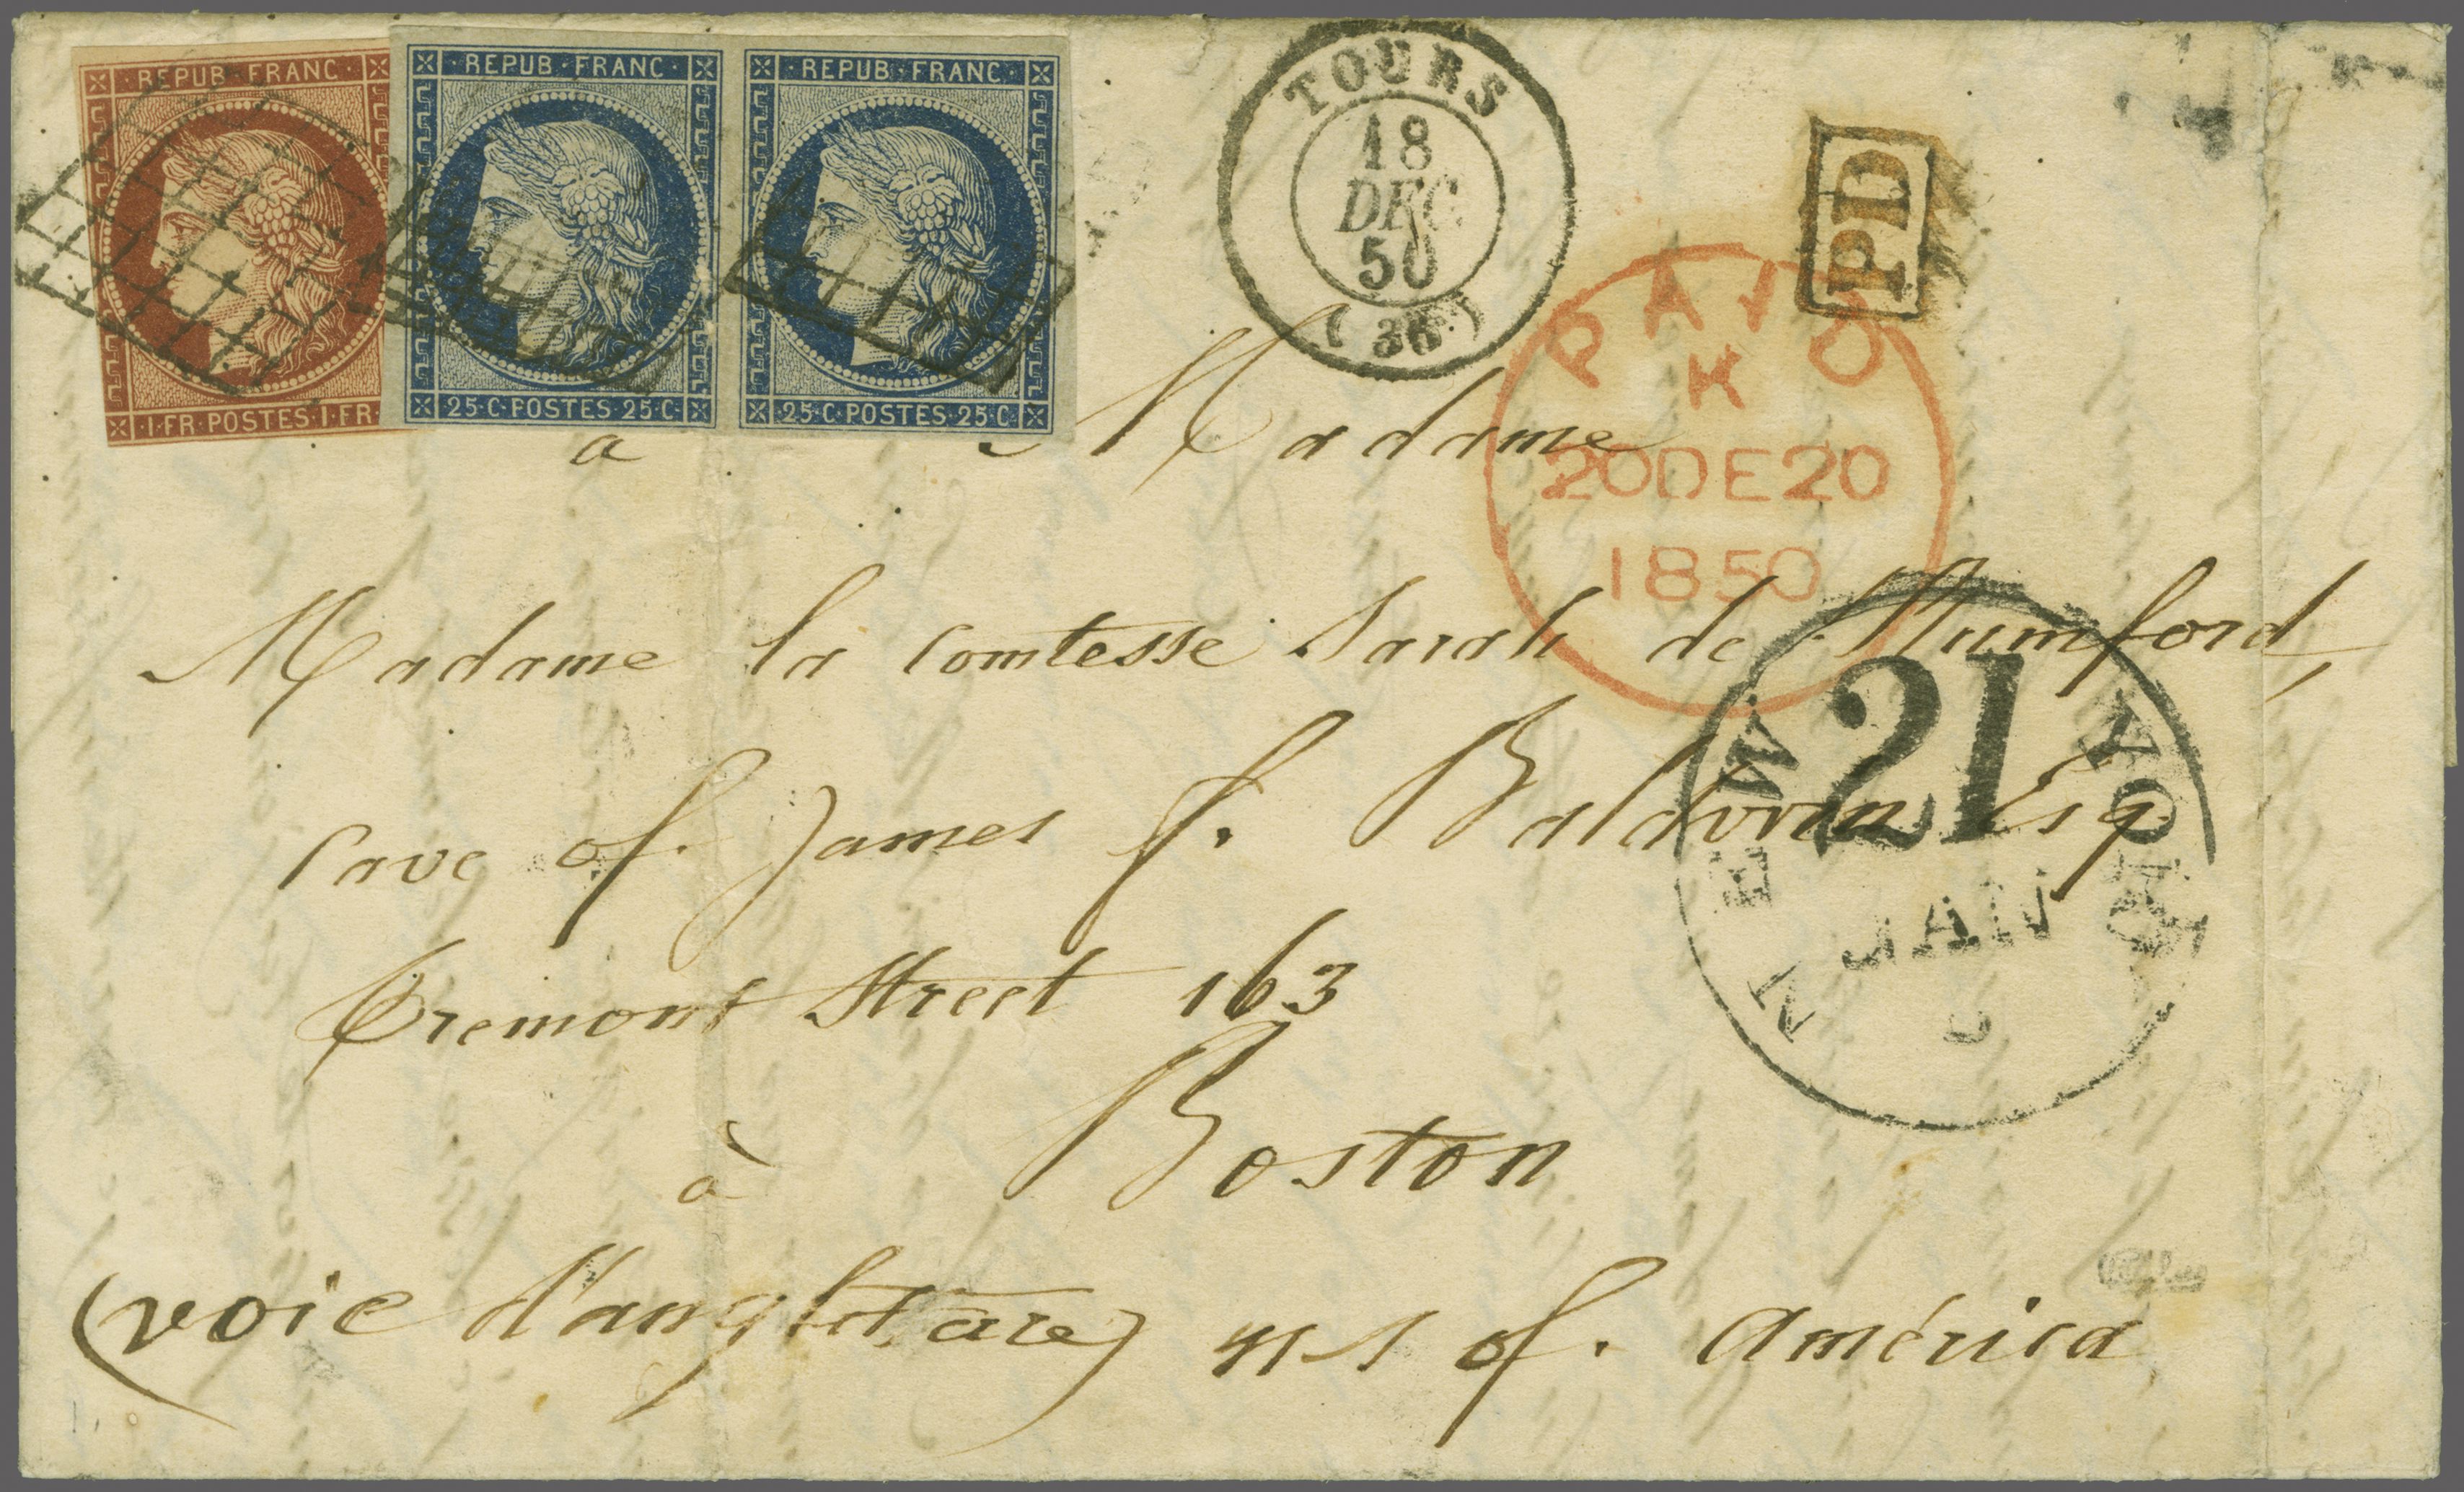 REPUB·FRANC· REPUB·FRANC· REPUB·FRANC·
·1·FR·POSTES·1·FR· 25·C·POSTES 25·C· 25·C·POSTES 25·C·
TOURS
18
DEC
50
(36)
PD
PAID
K
20DE20
1850
a Madame
Madame la comtesse Sarah de Rumford,
Care of. James f. Baldwin Esq.
Tremont Street 163
à Boston
(voie d'angleterre) us of. América
NEW YORK
21
JAN